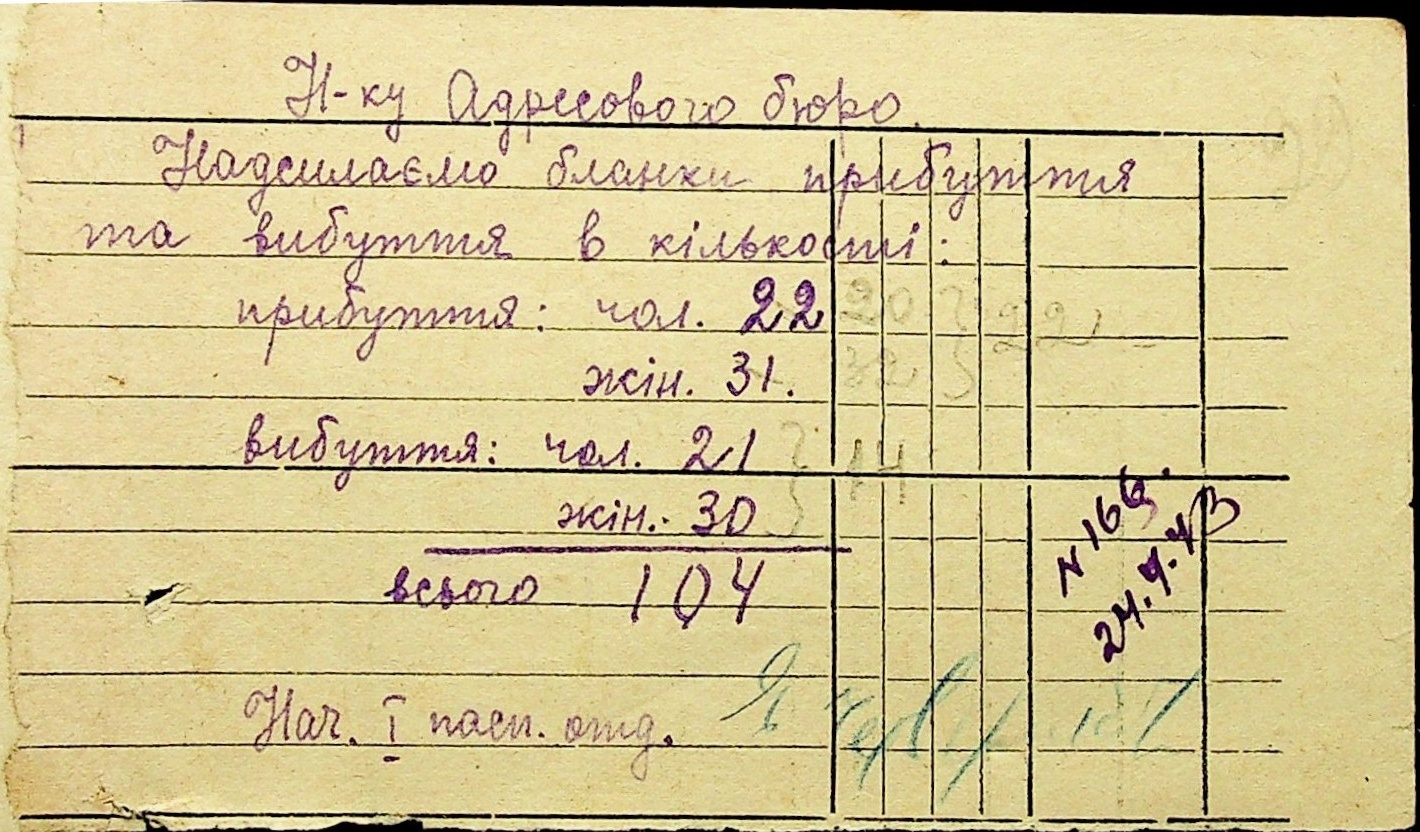 Н-ку Адресового бюро.
Надсилаємо бланки прибуття
та вибуття в кількості:
прибуття: чол. 22 20 } 22
жін. 31. 32
вибуття: чол. 21 } 14
жін. 30
всього 104
N 166.
Нач. I пасп. отд.